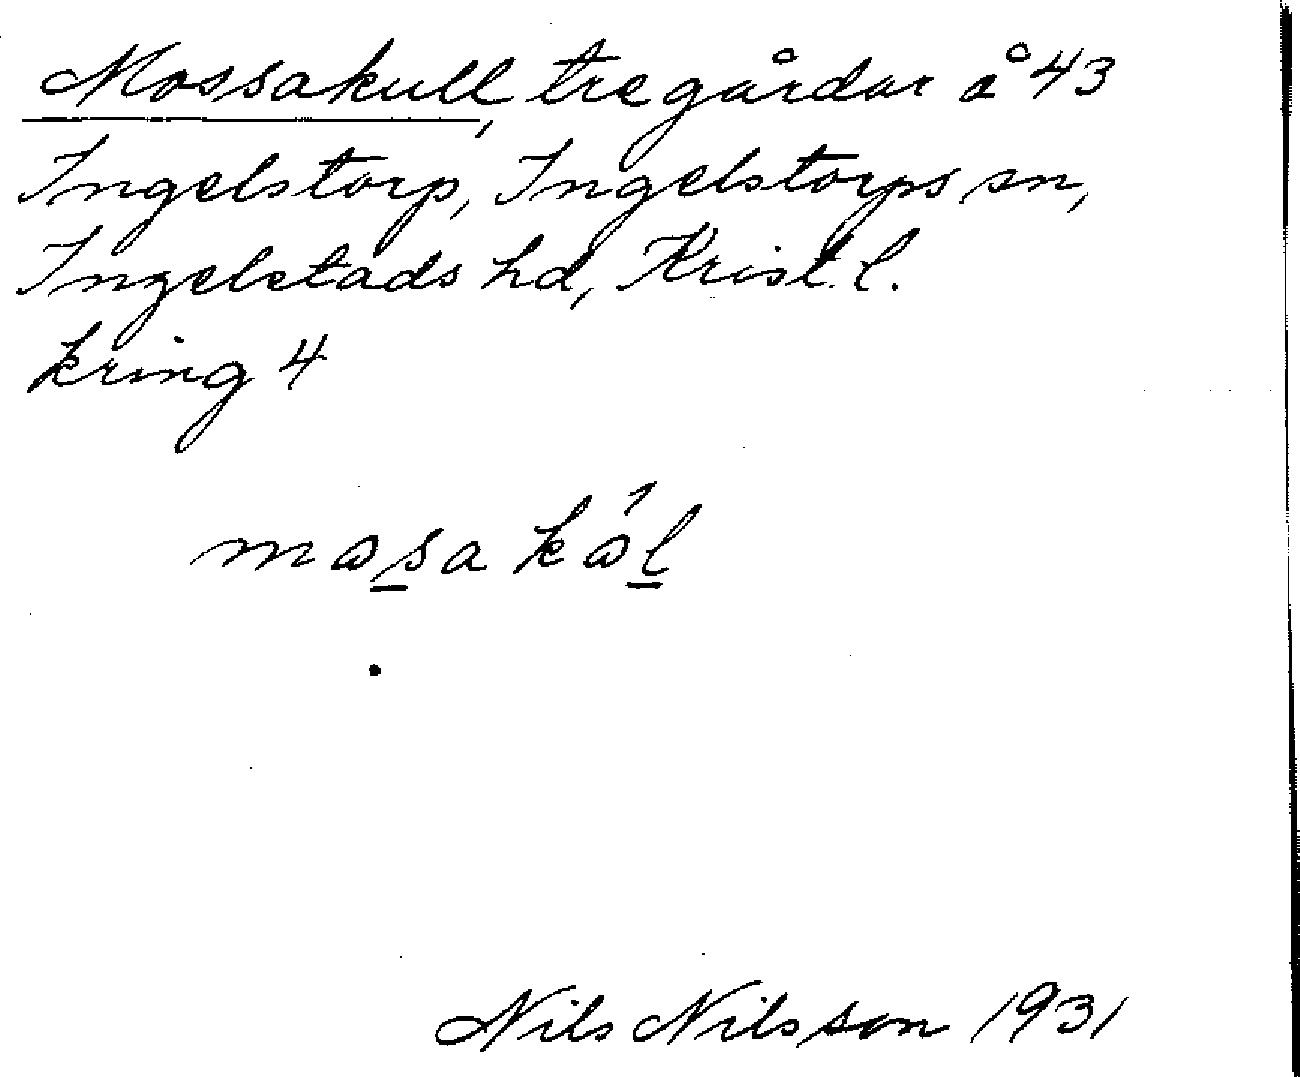 Mossakull, tre gårdar å 43
Ingelstorp, Ingelstorps sn,
Ingelstads hd, Krist. l.
kring 4
mɷs̲a kɷ́l̲
Nils Nilsson 1931